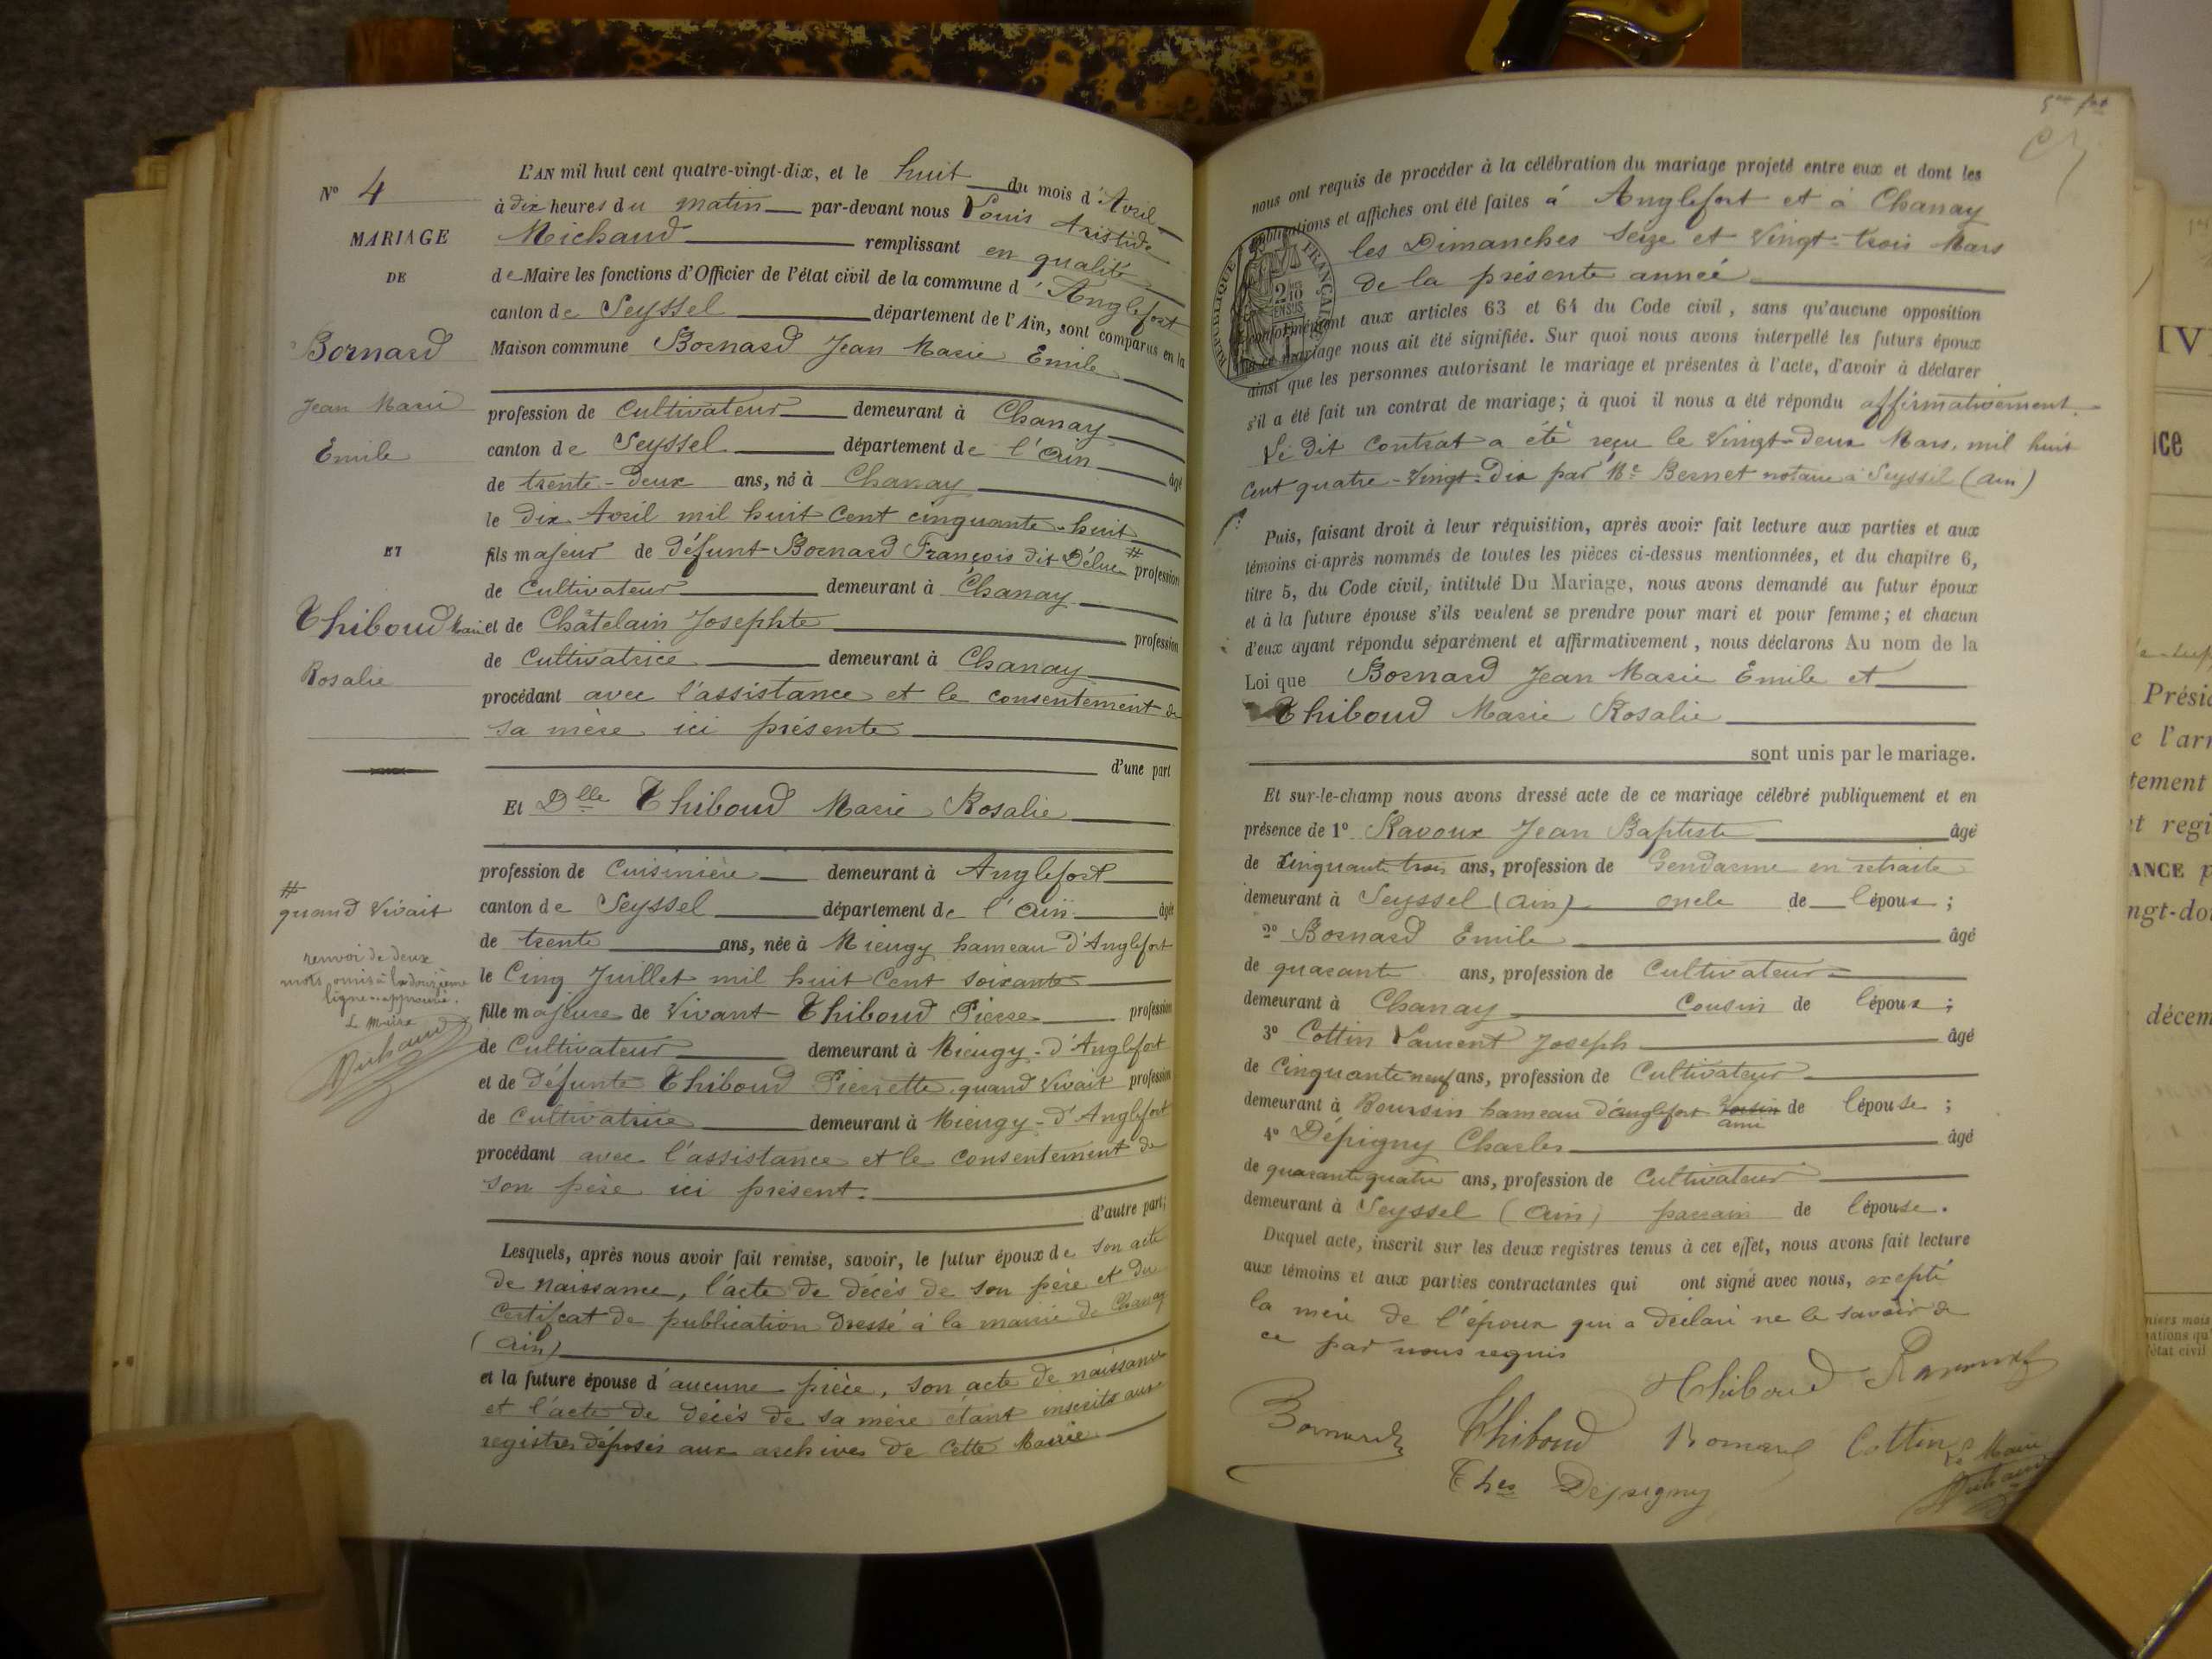 N° 4
MARIAGE
DE
Bornard
Jean Marie
Emile
ET
Thiboud Marie
Rosalie
#
quand vivait
renvoi de deux
mots omis à la douzième
ligne approuvé.
Le Maire
Michaud
L'AN mil huit cent quatre-vingt-dix, et le huit du mois d'Avril
à dix heures du matin par-devant nous Louis Aristide
Michaud remplissant en qualité
de Maire les fonctions d'Officier de l'état civil de la commune d'Anglefort
canton de Seyssel département de l'Ain, sont comparus en la
Maison commune Bornard Jean Marie Emile
profession de Cultivateur demeurant à Chanay
canton de Seyssel département de l'Ain âgé
de trente-deux ans, né à Chanay
le dix Avril mil huit cent cinquante-huit
fils majeur de défunt Bornard François dit Déluc # profession
de Cultivateur demeurant à Chanay
et de Châtelain Josephte profession
de Cultivatrice demeurant à Chanay
procédant avec l'assistance et le consentement de
sa mère ici présente
d'une part
Et Dlle Thiboud Marie Rosalie
profession de Cuisinière demeurant à Anglefort
canton de Seyssel département de l'Ain âgée
de trente ans, née à Mieugy hameau d'Anglefort
le Cinq Juillet mil huit cent soixante
fille majeure de vivant Thiboud Pierre profession
de Cultivateur demeurant à Mieugy-d'Anglefort
et de défunte Thiboud Pierrette quand vivait profession
de Cultivatrice demeurant à Mieugy-d'Anglefort
procédant avec l'assistance et le consentement de
son père ici présent.
d'autre part;
Lesquels, après nous avoir fait remise, savoir, le futur époux de son acte
de naissance, l'acte de décès de son père et du
certificat de publication dressé à la mairie de Chanay
(Ain)
et la future épouse d'aucune pièce, son acte de naissance
et l'acte de décès de sa mère étant inscrits aux
registres déposés aux archives de cette Mairie
nous ont requis de procéder à la célébration du mariage projeté entre eux et dont les
publications et affiches ont été faites à Anglefort et à Chanay
les Dimanches seize et vingt-trois Mars
de la présente année
conformément aux articles 63 et 64 du Code civil, sans qu'aucune opposition
mariage nous ait été signifiée. Sur quoi nous avons interpellé les futurs époux
ainsi que les personnes autorisant le mariage et présentes à l'acte, d'avoir à déclarer
s'il a été fait un contrat de mariage; à quoi il nous a été répondu affirmativement.
Le dit contrat a été reçu le vingt-deux Mars, mil huit
cent quatre-vingt-dix par Me Bernet notaire à Seyssel (Ain)
Puis, faisant droit à leur réquisition, après avoir fait lecture aux parties et aux
témoins ci-après nommés de toutes les pièces ci-dessus mentionnées, et du chapitre 6,
titre 5, du Code civil, intitulé Du Mariage, nous avons demandé au futur époux
et à la future épouse s'ils veulent se prendre pour mari et pour femme; et chacun
d'eux ayant répondu séparément et affirmativement, nous déclarons Au nom de la
Loi que Bornard Jean Marie Emile et
Thiboud Marie Rosalie
sont unis par le mariage.
Et sur-le-champ nous avons dressé acte de ce mariage célébré publiquement et en
présence de 1° Ravoux Jean Baptiste âgé
de cinquante trois ans, profession de Gendarme en retraite
demeurant à Seyssel (Ain) oncle de l'époux ;
2° Bornard Emile âgé
de quarante ans, profession de Cultivateur
demeurant à Chanay Cousin de l'époux ;
3° Cottin Laurent Joseph âgé
de Cinquante neuf ans, profession de Cultivateur
demeurant à Boursin hameau d'Anglefort voisin ami de l'épouse ;
4° Dépigny Charles âgé
de quarante quatre ans, profession de Cultivateur
demeurant à Seyssel (Ain) parrain de l'épouse.
Duquel acte, inscrit sur les deux registres tenus à cet effet, nous avons fait lecture
aux témoins et aux parties contractantes qui ont signé avec nous, excepté
la mère de l'époux qui a déclaré ne le savoir de
ce par nous requis
Thiboud Ravoux
Bornard Thiboud Bornard Cottin Le Maire
Ches Depigny Michaud
RÉPUBLIQUE FRANÇAISE
2/10 EN SUS
IV
Prési
e l'arr
tement
t regi
ANCE p
ngt-do
décem
niers mois
état civil